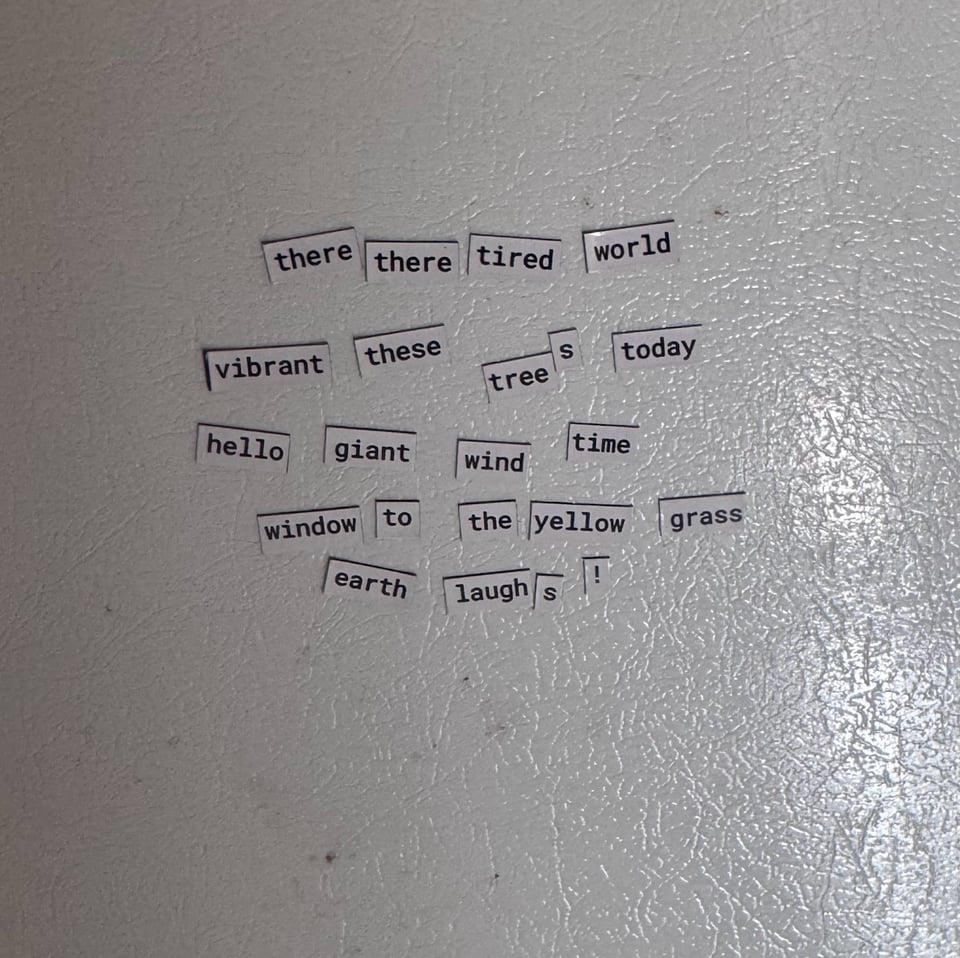 there there tired world
vibrant these trees today
hello giant wind time
window to the yellow grass
earth laughs!